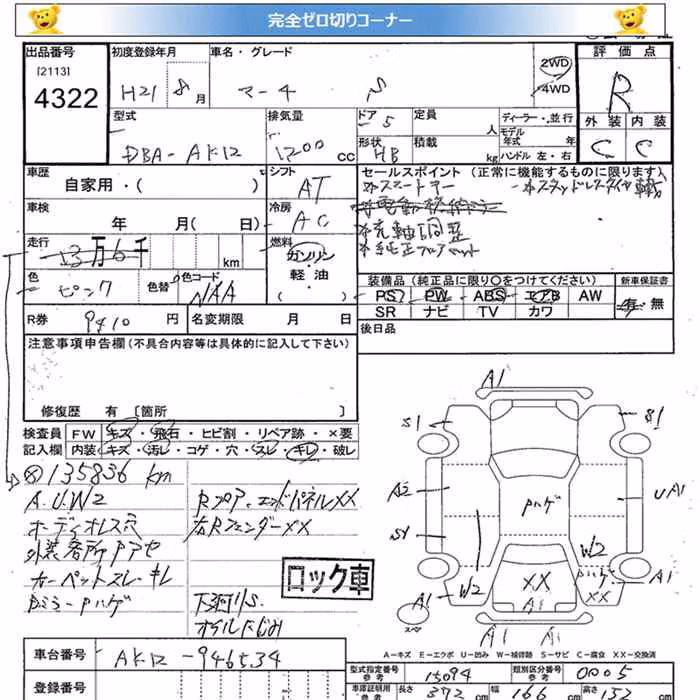 完全ゼロ切りコーナー
出品番号 初度登録年月 車名・グレード 評価点
[2113]
4322 H21 8月 マーチ 2WD 4WD R
型式 排気量 ドア 5 定員 人 ディーラー・並行 外装 内装
モデル年式 年 C C
DBA-AK12 1200 cc 形状 HB 積載 kg ハンドル 左・右
車歴 シフト セールスポイント(正常に機能するものに限ります)
自家用・( ) AT スマートキー
車検 冷房
年 月( 日) AC
走行 燃料 光軸調整
13万6千 km ガソリン
色 色替 色コード 軽・油 装備品(純正品に限り○をつけてください) 新車保証書
ピンク NAA ( ) PS PW ABS エアB AW 有・無
SR ナビ TV カワ
R券 9410 円 名変期限 月 日 後日品
注意事項申告欄(不具合内容等は具体的に記入して下さい)
修復歴 有 [箇所 ]
検査員 FW キズ・飛石・ヒビ割・リペア跡・×要
記入欄 内装 キズ・汚レ・コゲ・穴・スレ・キレ・破レ
※135836 km
A.U.W2 RフロアエンドパネルXX
右RフェンダーXX
カーペットスレ・キレ
ロック車
下廻りS
オイルにじみ
A1
S1 S1
A2 Pハゲ UA1
S1 W2
W2 XX Pハゲ XX A1
A1 A1
スペア A1 A1
A-キズ E-エクボ U-凹み W-補修跡 S-サビ C-腐食 XX-交換済
車台番号 AK12-946534 型式指定番号 参考 15094 類別区分番号 参考 0005
登録番号 車庫証明用 参考 長さ 372 cm 幅 166 cm 高さ 152 cm